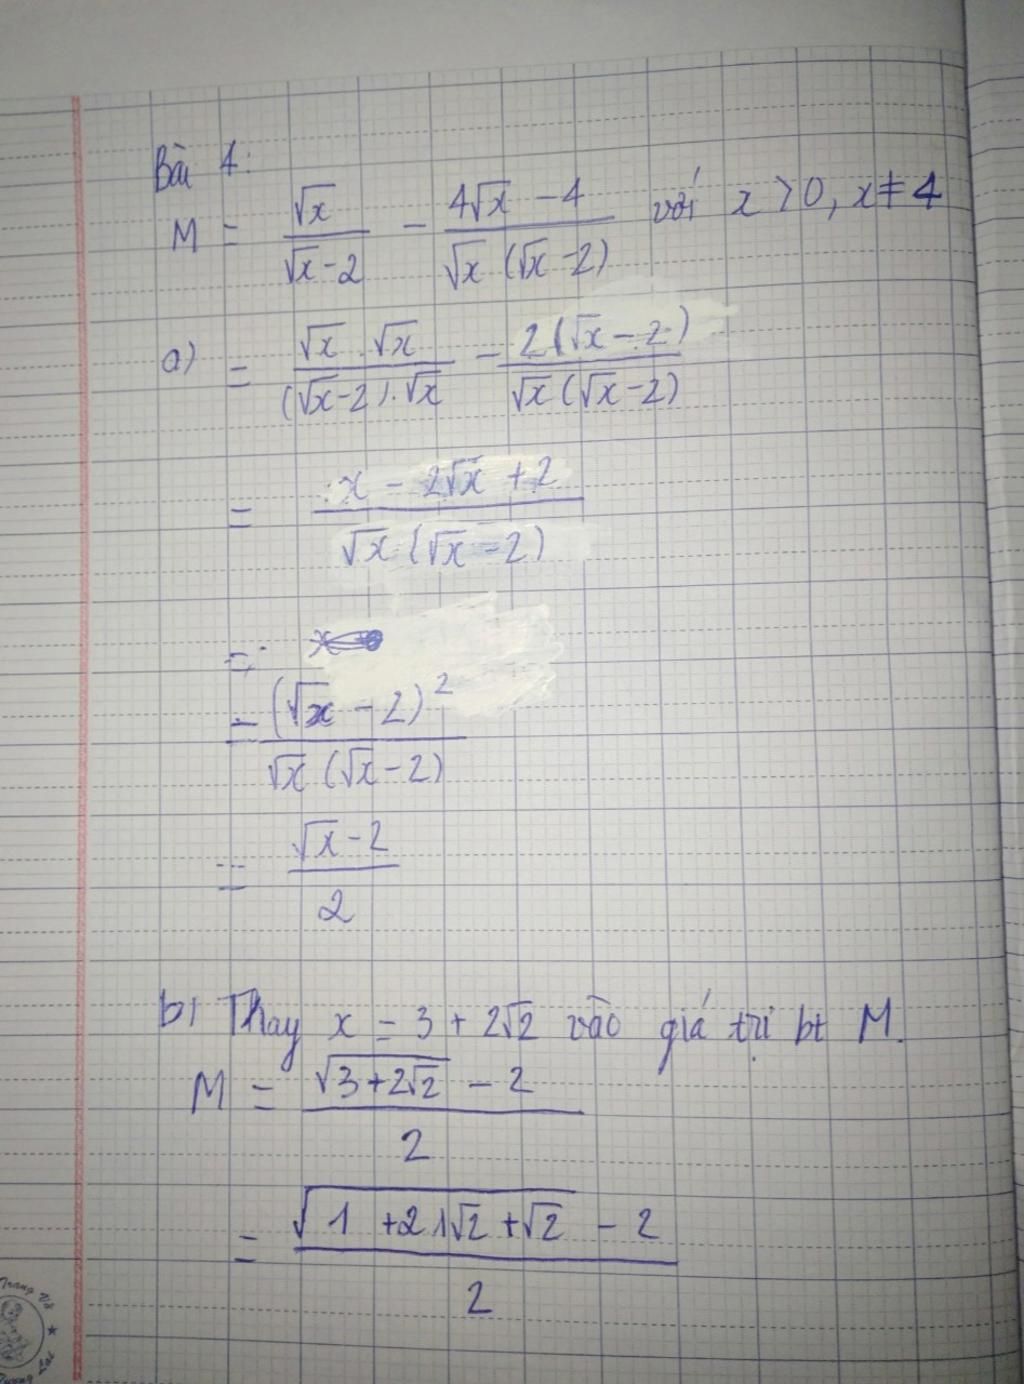 Bài 4:
M = √x / (√x - 2) - (4√x - 4) / (√x (√x - 2)) với x > 0, x ≠ 4
a) = (√x . √x) / ((√x - 2) . √x) - 2(√x - 2) / (√x (√x - 2))
= (x - 2√x + 2) / (√x (√x - 2))
=
= (√x - 2)² / (√x (√x - 2))
= (√x - 2) / 2
b) Thay x = 3 + 2√2 vào giá trị bt M.
M = (√(3 + 2√2) - 2) / 2
= (√(1 + 2.1√2 + √2) - 2) / 2